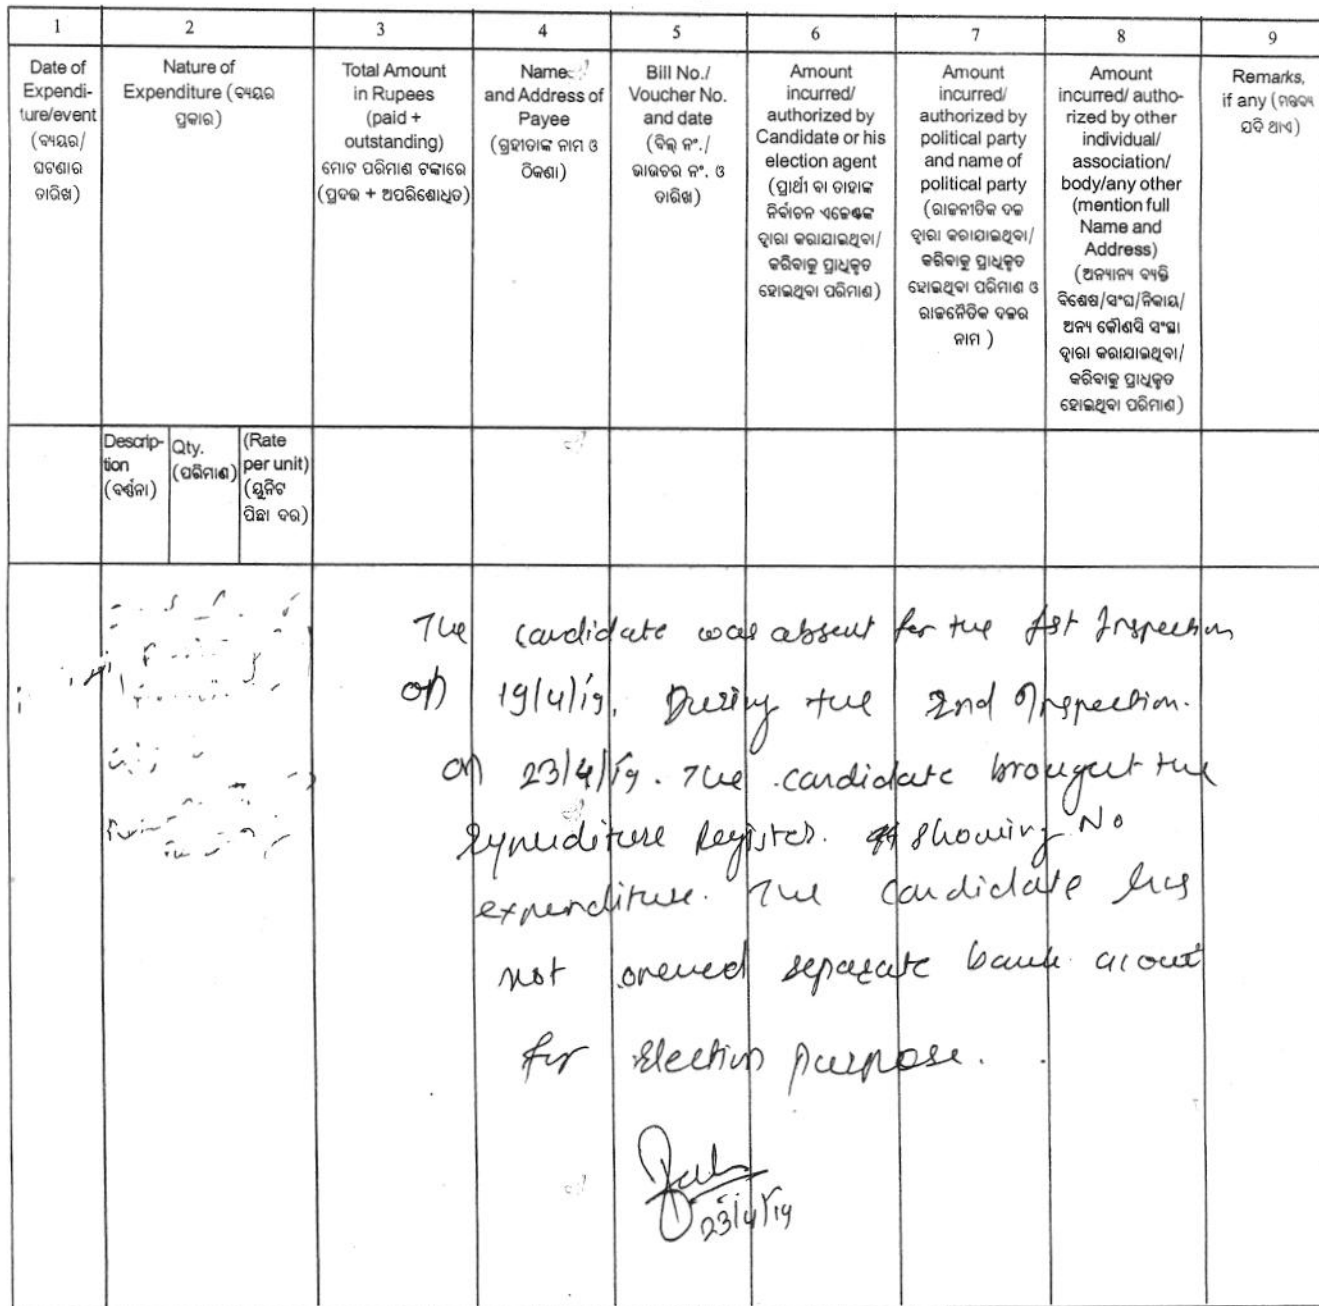 1 2 3 4 5 6 7 8 9
Date of
Expendi-
ture/event
(ବ୍ୟୟର/
ଘଟଣାର
ତାରିଖ)
Nature of
Expenditure (ବ୍ୟୟର
ପ୍ରକାର)
Total Amount
in Rupees
(paid +
outstanding)
ମୋଟ ପରିମାଣ ଟଙ୍କାରେ
(ପ୍ରଦତ୍ତ + ଅପରିଶୋଧିତ)
Name
and Address of
Payee
(ଗ୍ରହୀତାଙ୍କ ନାମ ଓ
ଠିକଣା)
Bill No./
Voucher No.
and date
(ବିଲ୍ ନଂ./
ଭାଉଚର ନଂ. ଓ
ତାରିଖ)
Amount
incurred/
authorized by
Candidate or his
election agent
(ପ୍ରାର୍ଥୀ ବା ତାହାଙ୍କ
ନିର୍ବାଚନ ଏଜେଣ୍ଟଙ୍କ
ଦ୍ୱାରା କରାଯାଇଥିବା/
କରିବାକୁ ପ୍ରାଧିକୃତ
ହୋଇଥିବା ପରିମାଣ)
Amount
incurred/
authorized by
political party
and name of
political party
(ରାଜନୀତିକ ଦଳ
ଦ୍ୱାରା କରାଯାଇଥିବା/
କରିବାକୁ ପ୍ରାଧିକୃତ
ହୋଇଥିବା ପରିମାଣ ଓ
ରାଜନୈତିକ ଦଳର
ନାମ )
Amount
incurred/ autho-
rized by other
individual/
association/
body/any other
(mention full
Name and
Address)
(ଅନ୍ୟାନ୍ୟ ବ୍ୟକ୍ତି
ବିଶେଷ/ସଂଘ/ନିକାୟ/
ଅନ୍ୟ କୌଣସି ସଂସ୍ଥା
ଦ୍ୱାରା କରାଯାଇଥିବା/
କରିବାକୁ ପ୍ରାଧିକୃତ
ହୋଇଥିବା ପରିମାଣ)
Remarks,
if any (ମନ୍ତବ୍ୟ
ଯଦି ଥାଏ)
Descrip-
tion
(ବର୍ଣ୍ଣନା)
Qty.
(ପରିମାଣ)
(Rate
per unit)
(ୟୁନିଟ
ପିଛା ଦର)
The candidate was absent for the 1st Inspection
on 19/4/19. During the 2nd Inspection.
on 23/4/19. The candidate brought the
Expenditure Register. showing No
expenditure. The candidate has
not opened separate bank acount
for Election purpose.
23/4/19